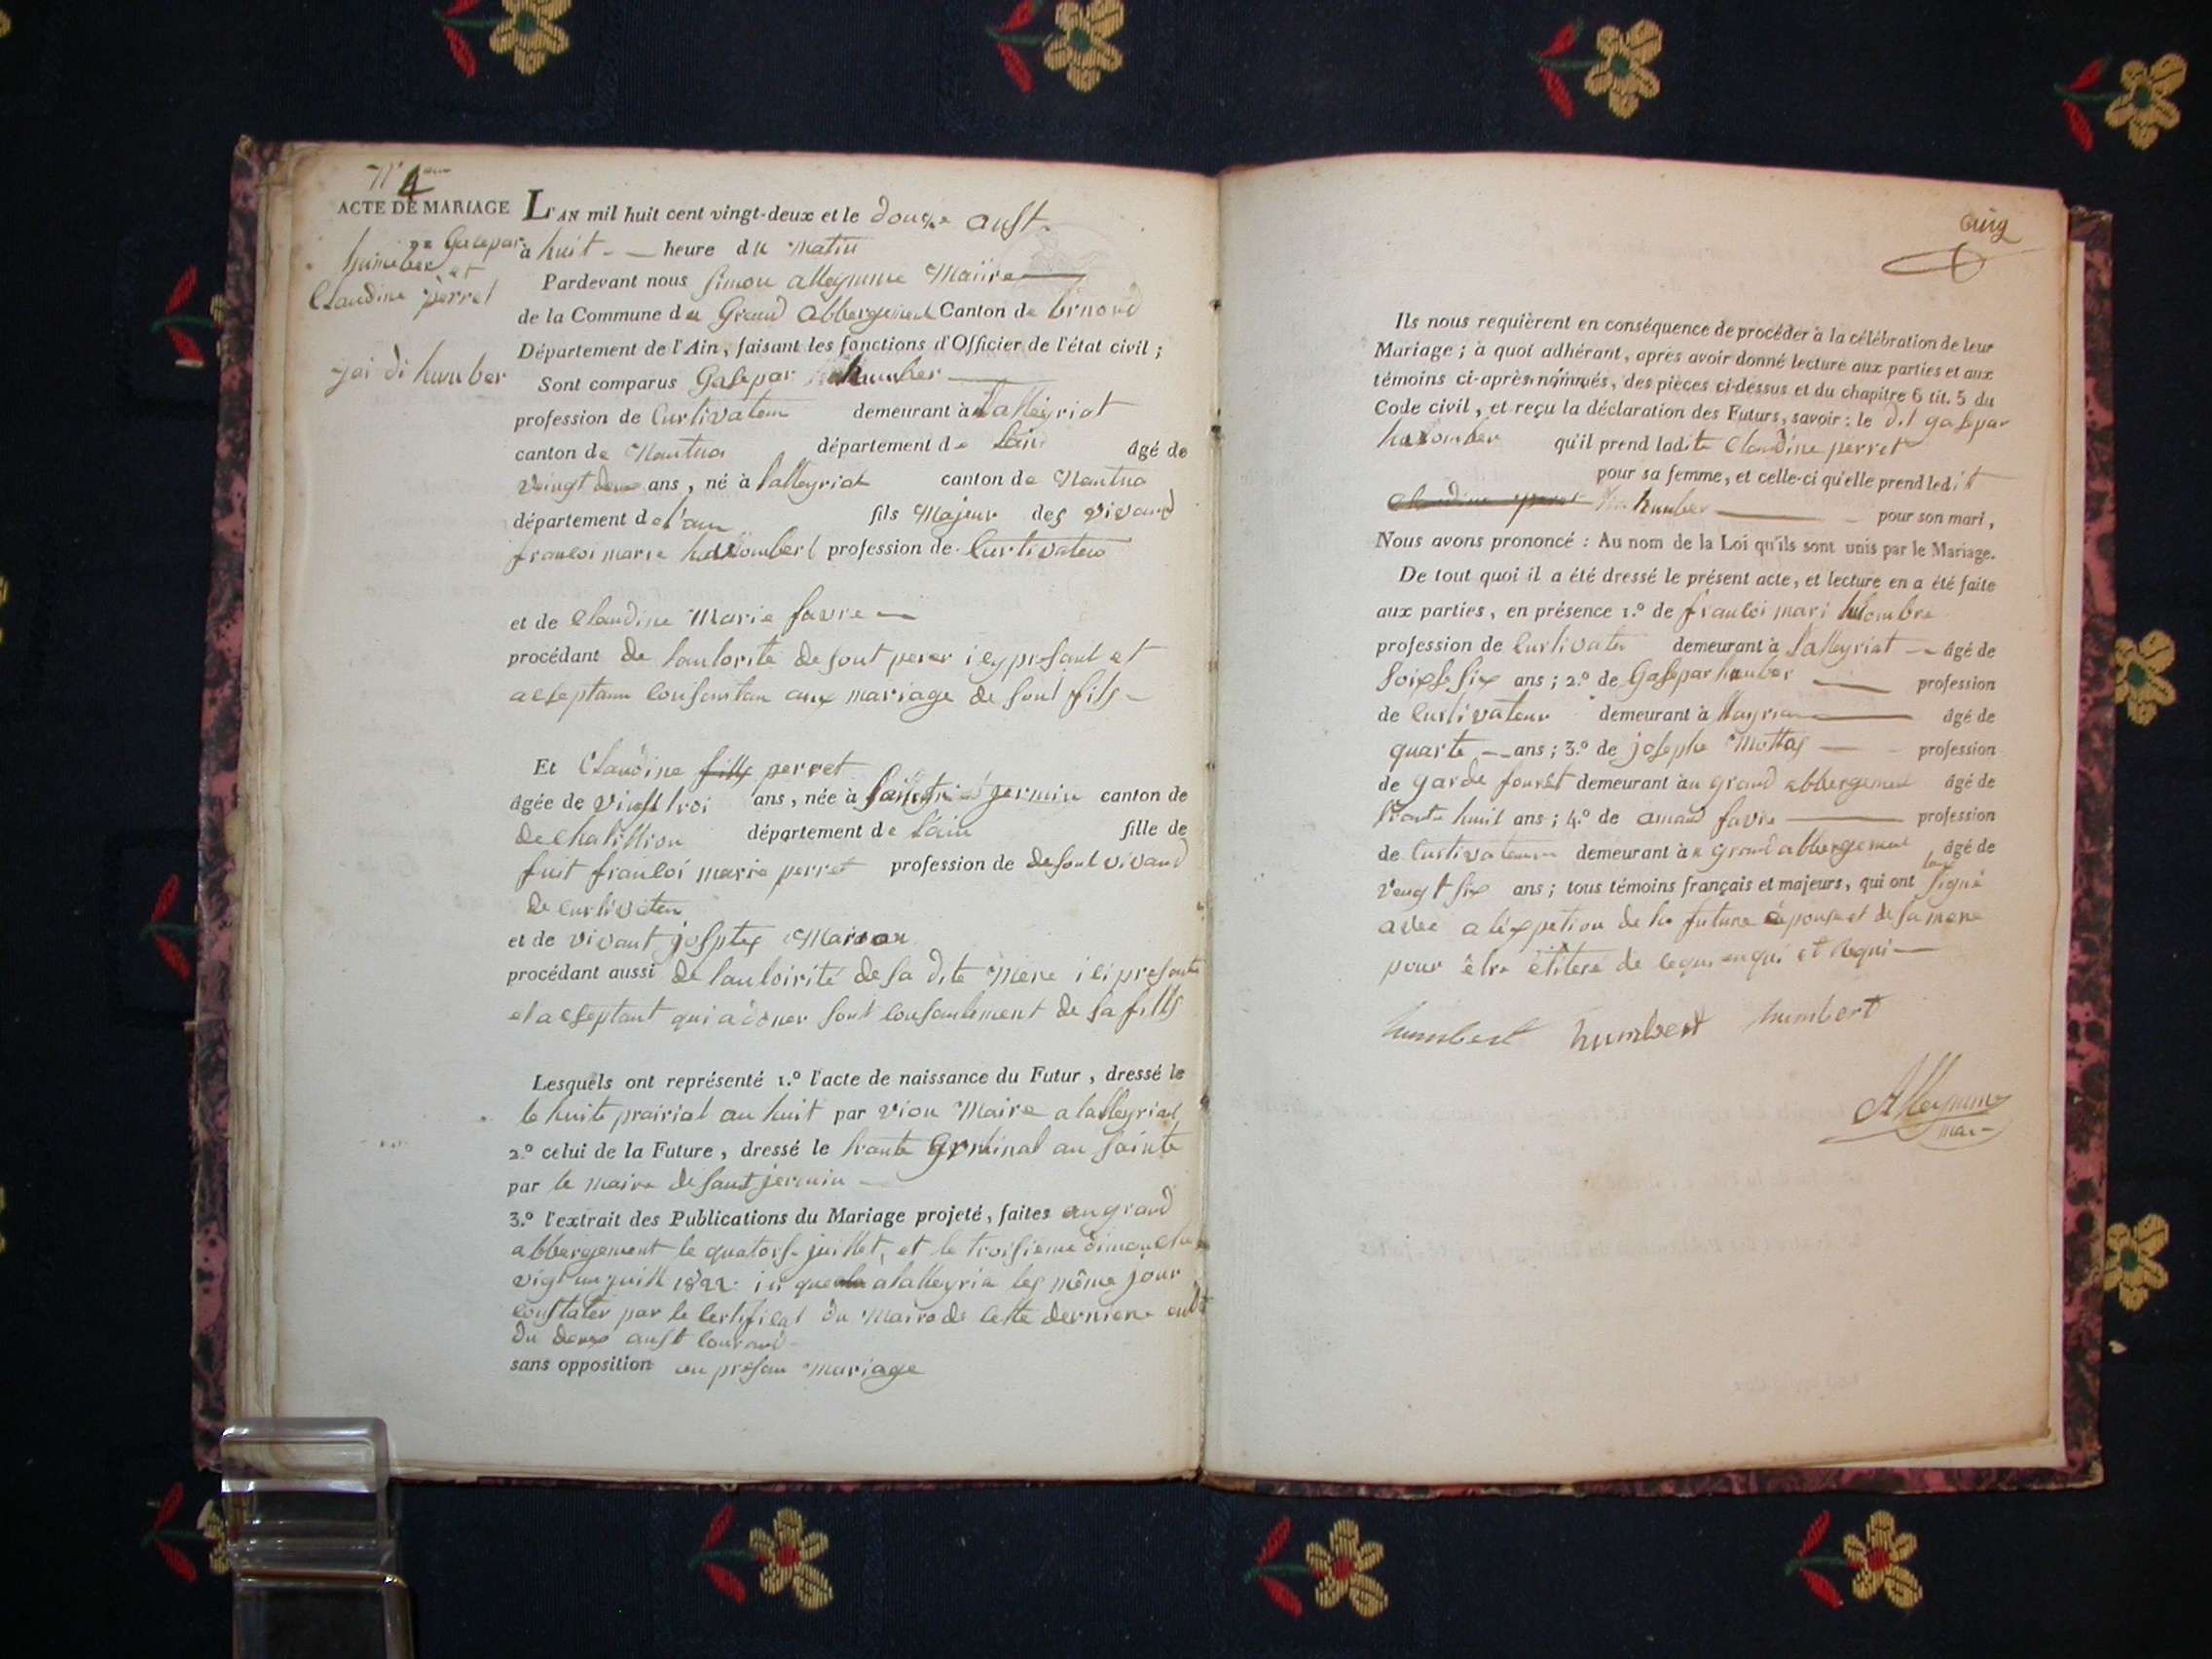 N° 4
ACTE DE MARIAGE
de Gasepar
humber et
Claudine perret
jai di humber
L'AN mil huit cent vingt-deux et le douze aust
à huit heure du Matin
Pardevant nous Simon alleymme Maiire
de la Commune du Grand Abbergement Canton de brnond
Département de l'Ain, faisant les fonctions d'Officier de l'état civil ;
Sont comparus Gasepar humber
profession de Curtivateur demeurant à lalleyriat
canton de Nantua département de lain âgé de
veingt deux ans, né à lalleyriat canton de Nantua
département de l'ain fils Majeur des vivand
francoi marie humbert profession de Curtivateur
et de Claudine Marie favre
procédant de lautorité de sont perer icy presant et
acseptann consantan aux mariage de sont fils
Et Claudine perret
âgée de vingt troi ans, née à saint jermin canton de
de Chatillion département de lain fille de
fuit francoi marie perret profession de de sont vivand
de curtivateu
et de vivant josepte
procédant aussi de lautoirité de sa dite Mere ici presante
et acseptant qui a doner sont consantement de sa fills
Lesquels ont représenté 1.° l'acte de naissance du Futur, dressé le
le huite prairial an huit par vion Maire a lalleyriat
2.° celui de la Future, dressé le trante Germinal an sainte
par le maire de saint jermin
3.° l'extrait des Publications du Mariage projeté, faites au grand
abbergement le quatorse juillet, et le troisieme dimanche
vigt un juill 1822 a lalleyria les même jour
constater par le Certificat du Maire de cette derniere
du deux aust courand
sans opposition au presan mariage
Ils nous requièrent en conséquence de procéder à la célébration de leur
Mariage ; à quoi adhérant, après avoir donné lecture aux parties et aux
témoins ci-après nommés, des pièces ci-dessus et du chapitre 6 tit. 5 du
Code civil, et reçu la déclaration des Futurs, savoir : le dit gasepar
humber qu'il prend ladite Claudine perret
pour sa femme, et celle-ci qu'elle prend ledit
humber pour son mari,
Nous avons prononcé : Au nom de la Loi qu'ils sont unis par le Mariage.
De tout quoi il a été dressé le présent acte, et lecture en a été faite
aux parties, en présence 1.° de francoi mari humbre
profession de Curtivateu demeurant à lalleyriat âgé de
ans ; 2.° de Gasepar humber profession
de Curtivateur demeurant à âgé de
quarte ans ; 3.° de josephe Mottas profession
de garde fouret demeurant au grand abbergement âgé de
trante huit ans ; 4.° de amand favre profession
de Curtivateur demeurant à grand abbergement âgé de
veugt six ans ; tous témoins français et majeurs, qui ont signé
avec a l'expetion de la future épouse et de sa mere
pour être de ce
humbert humbert humbert
Alleymme
mai